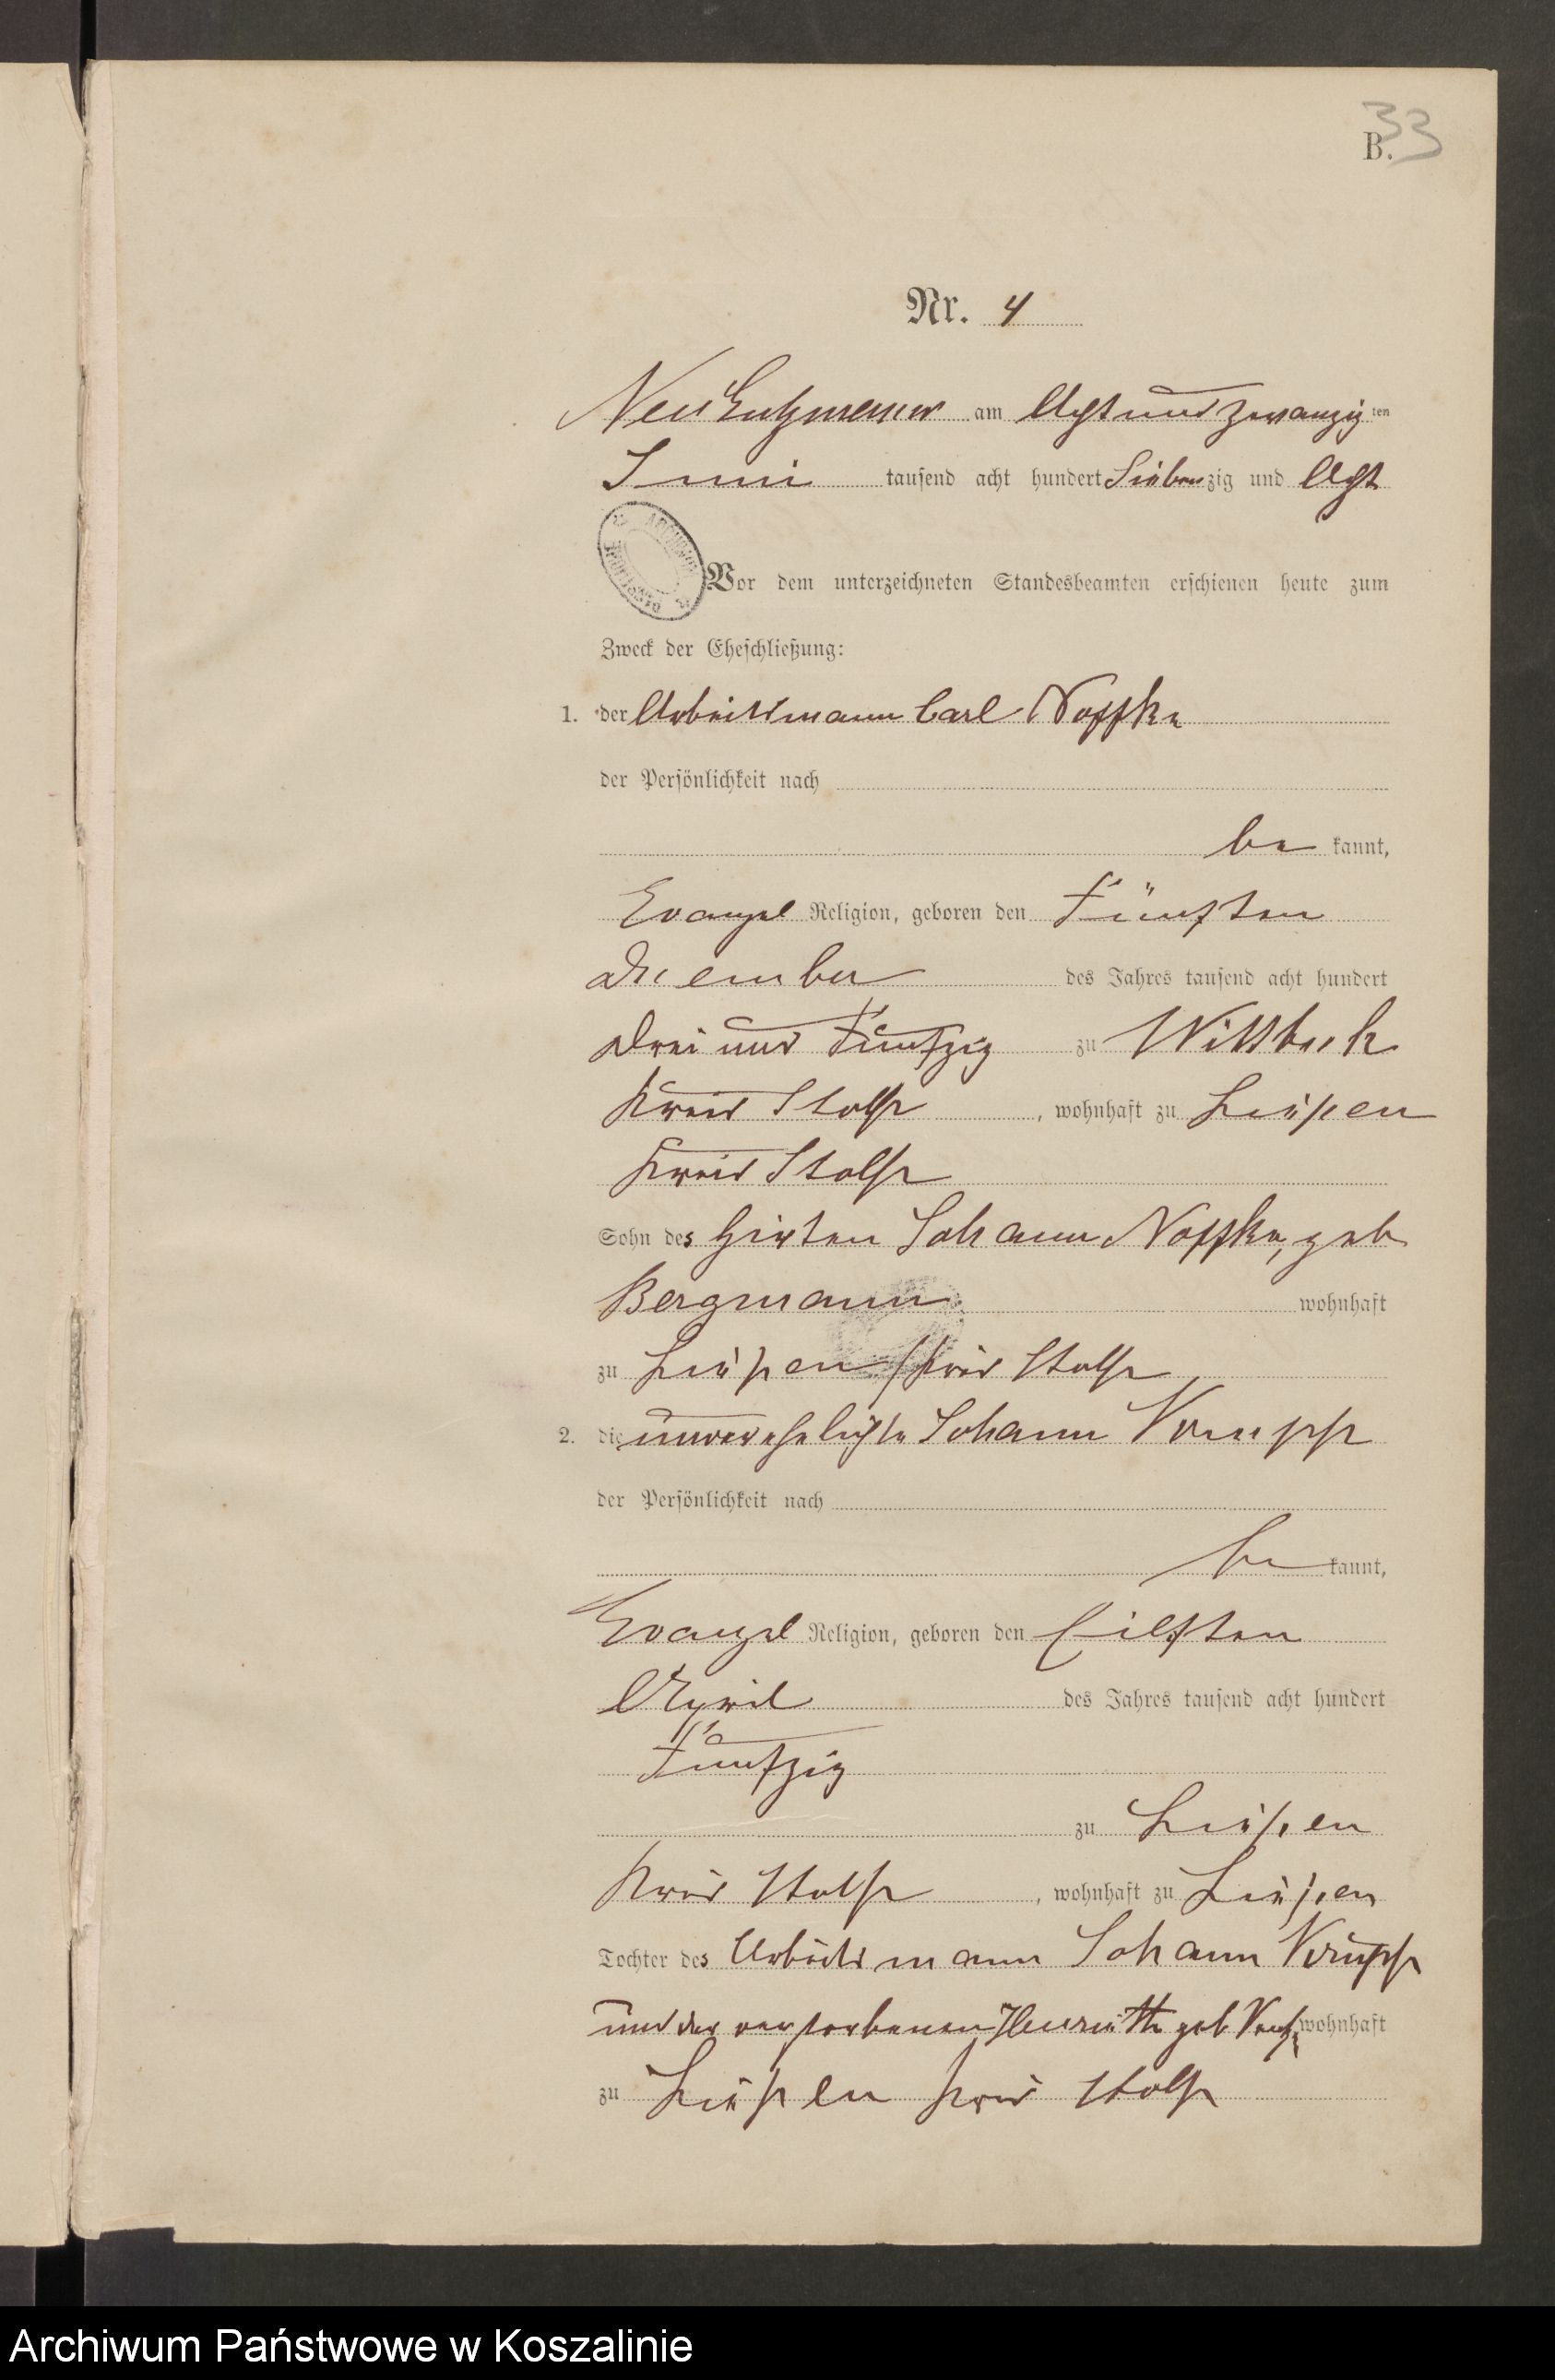 33
B.
Nr. 4
Neu Gutzmerow am Acht und zwanzig ten
Juni tausend acht hundert Siebenzig und Acht
Vor dem unterzeichneten Standesbeamten erschienen heute zum
Zweck der Eheschließung:
1. der Arbeitsmann Carl Noffke
der Persönlichkeit nach
be kannt,
Evangel Religion, geboren den Fünften
December des Jahres tausend acht hundert
Drei und Fünfzig zu Wittbeck
Kreis Stolp, wohnhaft zu Lüpen
Kreis Stolp
Sohn des Hirten Johann Noffke, geb
Bergmann wohnhaft
zu Kreis Stolp
2. die unverehelichte Johann
der Persönlichkeit nach
be kannt,
Evangel Religion, geboren den Eilften
April des Jahres tausend acht hundert
Fünfzig
zu
Kreis Stolp, wohnhaft zu
Tochter des Arbeitsmann Johann
und der verstorbenen geb wohnhaft
zu Kreis Stolp
Archiwum Państwowe w Koszalinie